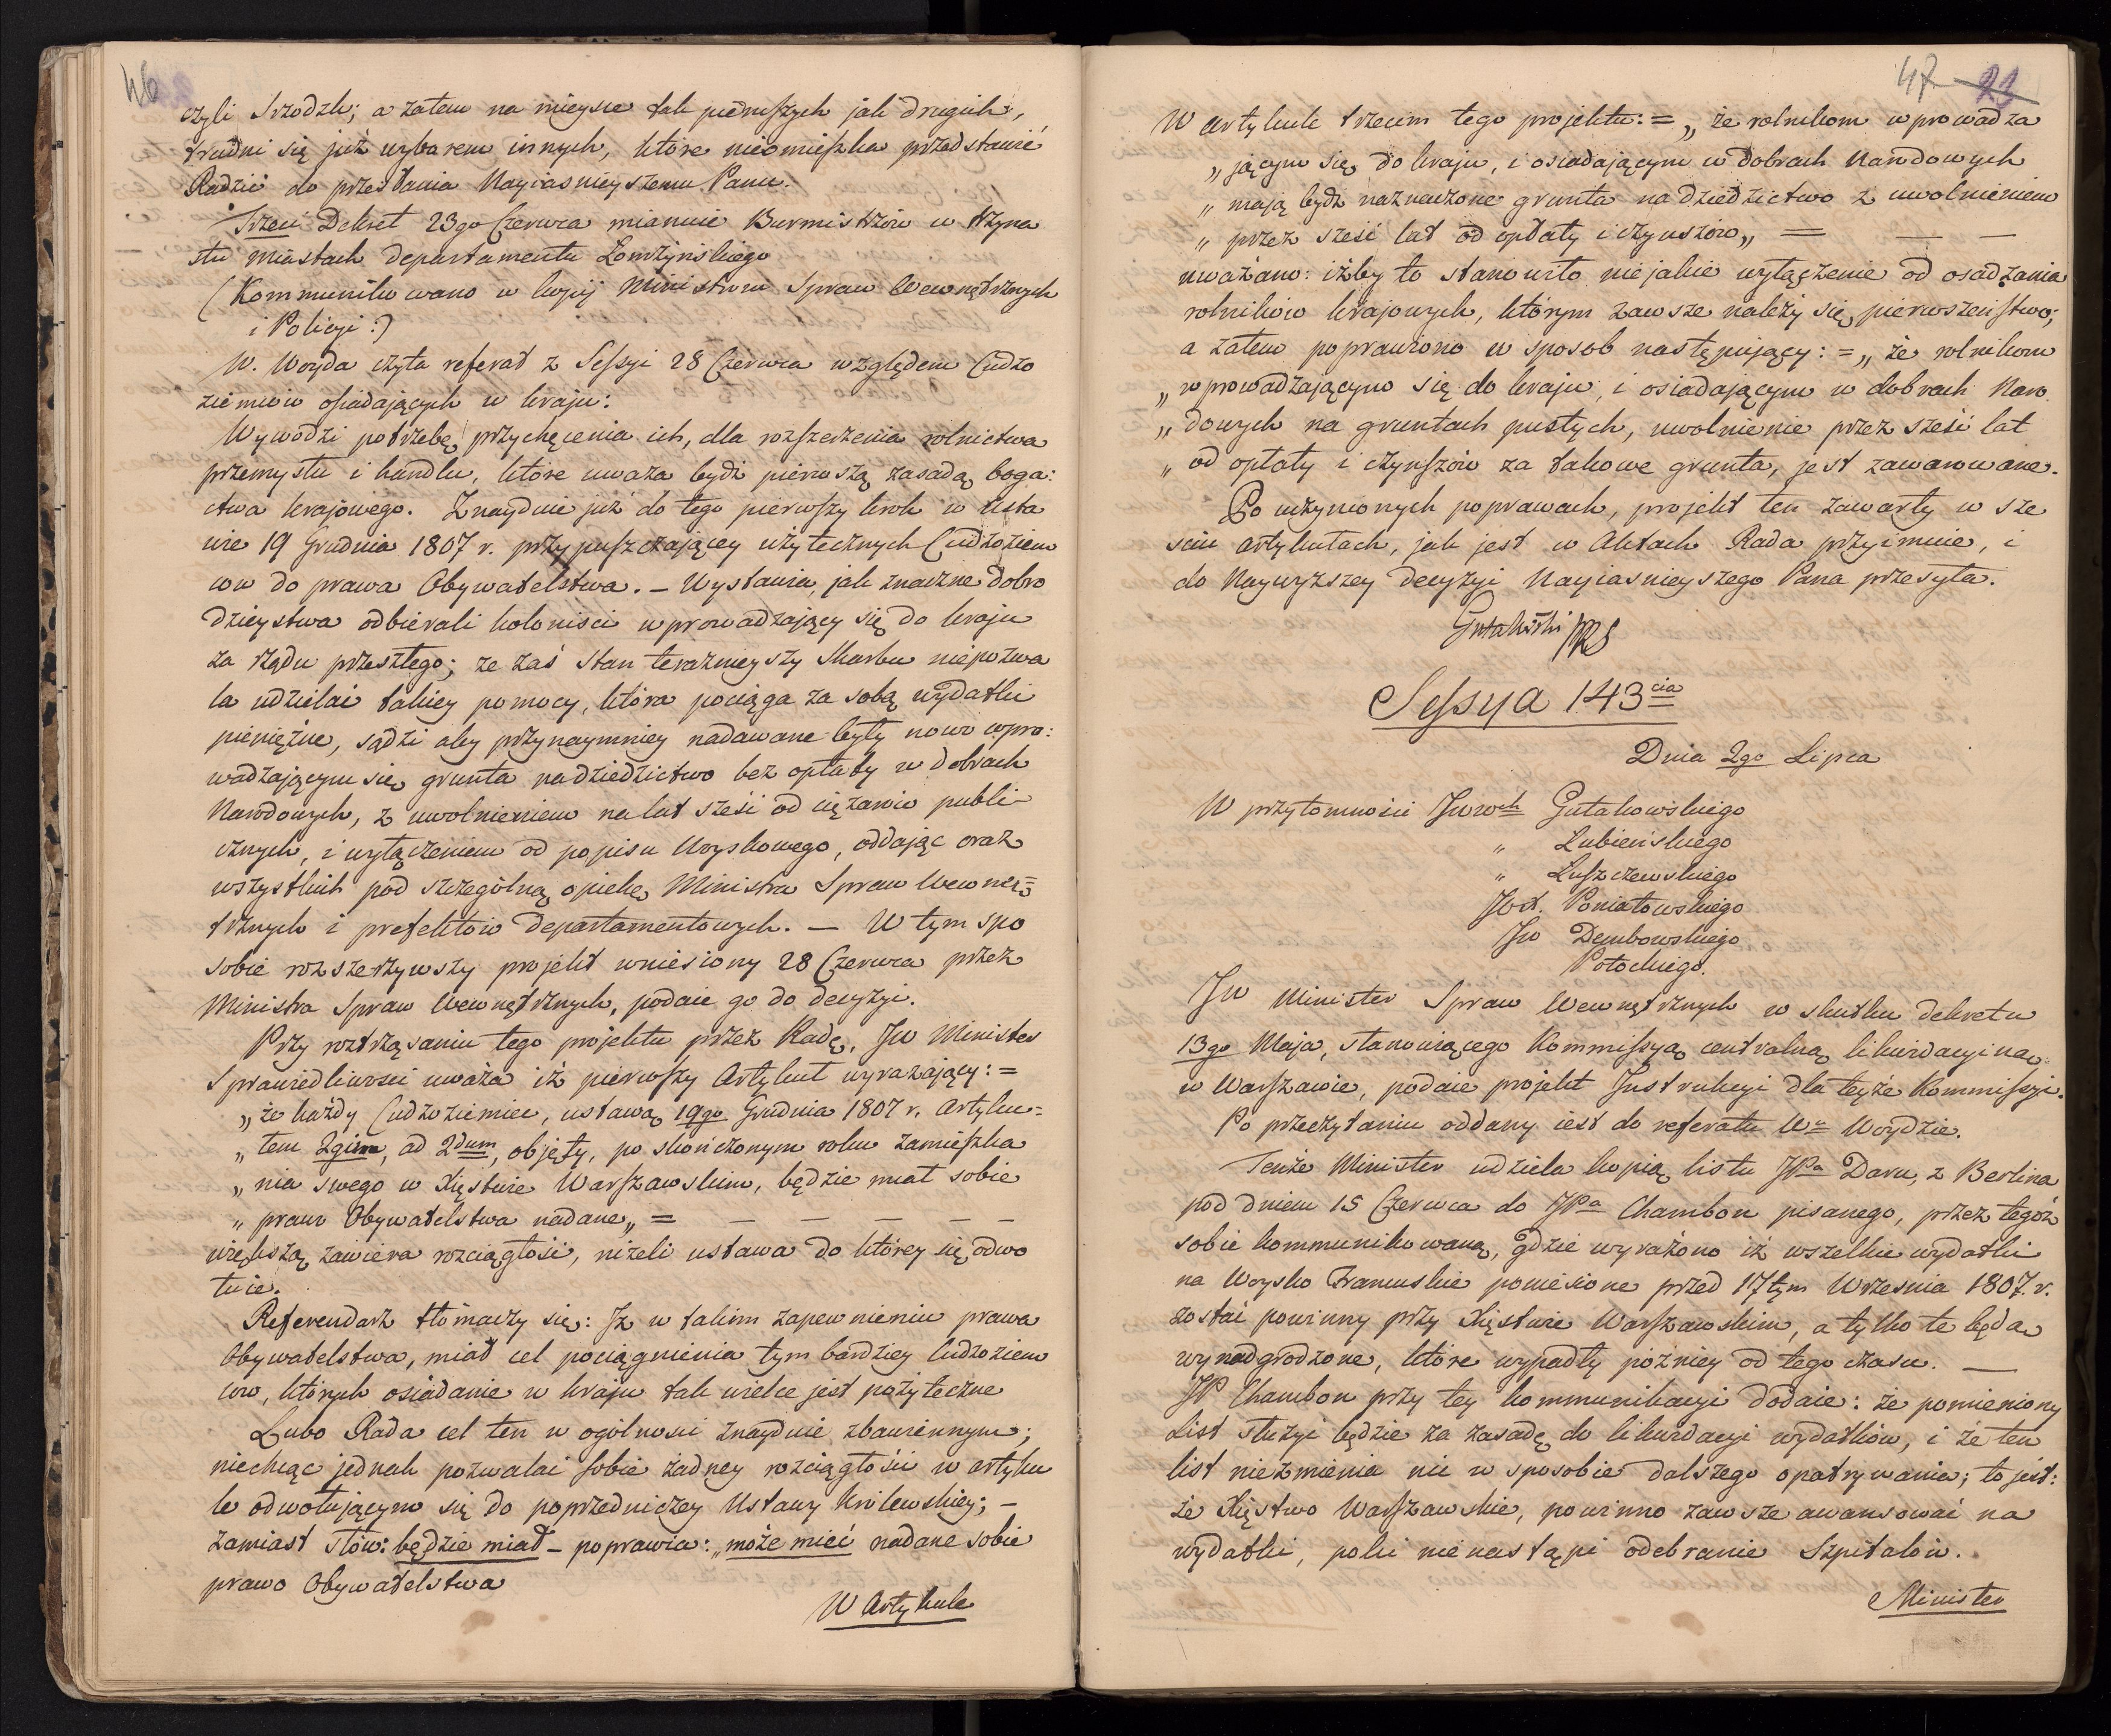 46
czyli Srzodzk; a zatem na mieysce tak pierwszych jak drugich,
trudni się już wyborem innych, które nieomieszka przedstawić
Radzie do przesłania Nayiasnieyszemu Panu.
Trzeci Dekret 23go Czerwca mianuie Burmistrzów w trzyna
stu miastach departamentu Łomżyńskiego
(Kommunikowano w kopij Ministrom Spraw Wewnętrznych
i Policyi:)
W. Woyda czyta referat z Sessyi 28 Czerwca względem Cudzo
ziemców osiadających w kraju:
Wywodzi potrzebę przychęcenia ich, dla rozszerzenia rolnictwa
przemysłu i handlu, które uważa bydź pierwszą zasadą boga:
ctwa krajowego. Znayduie już do tego pierwszy krok w Usta
wie 19 Grudnia 1807 r. przypuszczającey użytecznych Cudzoziem
ców do prawa Obywatelstwa. – Wystawia, jak znaczne dobro
dzieystwa odbierali koloniści wprowadzający się do kraju
za rządu przeszłego; że zaś stan teraźnieyszy skarbu niepozwa
la udzielać takiey pomocy, która pociąga za sobą wydatki
pieniężne, sądzi aby przynaymniey nadawane były nowo wpro:
wadzającym się grunta na dziedzictwo bez opłaty w dobrach
Narodowych, z uwolnieniem na lat sześć od ciężarów publi-
cznych, i wyłączeniem od popisu Woyskowego, oddając oraz
wszystkich pod szczególną opiekę Ministra Spraw Wewnę=
trznych i prefektów Departamentowych. — W tym spo
sobie rozszerzywszy projekt wniesiony 28 Czerwca przez
Ministra Spraw Wewnętrznych, podaie go do decyzyi.
Przy roztrząsaniu tego projektu przez Radę, JW Minister
Sprawiedliwości uważa iż pierwszy Artykuł wyrażający: =
„że każdy Cudzoziemiec, ustawą 19go Grudnia 1807 r. Artyku=
„łem 2gim, ad 2dum, objęty, po skończonym roku zamieszka
„nia swego w Xięstwie Warszawskim, będzie miał sobie
„prawo Obywatelstwa nadane„ = — — — — —
większą zawiera rozciągłość, niżeli ustawa do którey się odwo
łuie.
Referendarz tłómaczy się: Iż w takim zapewnieniu prawa
Obywatelstwa, miał cel pociągnienia tym bardziey Cudzoziem
ców, których osiadanie w kraju tak wielce jest pożyteczne
Lubo Rada cel ten w ogólności znayduie zbawiennym;
niechcąc jednak pozwalać sobie żadney rozciągłości w artyku
le odwołującym się do poprzedniczey Ustawy Królewskiey; –
zamiast słów: będzie miał – poprawia: „może mieć nadane sobie
prawo Obywatelstwa
W Artykule
47 23
W artykule trzecim tego projektu: = „że rolnikom wprowadza
„jącym się do kraju, i osiadającym w dobrach Narodowych
„mają bydź naznaczone grunta na dziedzictwo z uwolnieniem
„przez sześć lat od opłaty i czynszów„ = — —
uważano: iżby to stanowiło niejakie wyłączenie od osadzania
rolników krajowych, którym zawsze należy się pierwszeństwo;
a zatem poprawiono w sposób następujący: = „że rolnikom
„wprowadzającym się do kraju, i osiadającym w dobrach Naro
„dowych na gruntach pustych, uwolnienie przez sześć lat
„od opłaty i czynszów za takowe grunta, jest zawarowane.
Po uczynionych poprawach, projekt ten zawarty w sze
ściu artykułach, jak jest w Aktach Rada przyimuie, i
do Naywyższey decyzyi Nayiasnieyszego Pana przesyła.
Gutakowski PRS
Sessya 143cia
Dnia 2go Lipca
W przytomności JWWch Gutakowskiego
„ Lubieńskiego
„ Łuszczewskiego
JOX. Poniatowskiego
JW Dembowskiego
Potockiego.
JW Minister Spraw Wewnętrznych w skutku dekretu
13go Maja, stanowiącego Kommissyą centralną likwidacyiną
w Warszawie, podaie projekt Instrukcyi dla teyże Kommissyi.
Po przeczytaniu oddany iest do referatu Wu Woydzie.
Tenże Minister udziela kopią listu JPa Daru, z Berlina
pod dniem 15 Czerwca do JPa Chambon pisanego, przez tegoż
sobie kommunikowaną, gdzie wyrażono iż wszelkie wydatki
na Woysko Francuskie poniesione przed 17tym Września 1807. r.
zostać powinny przy Xięstwie Warszawskim, a tylko te będą
wynadgrodzone, które wypadły późniey od tego czasu. —
JP Chambon przy tey kommunikacyi dodaie: że pomieniony
List służyć będzie za zasadę do likwidacyi wydatków, i że ten
list niezmienia nic w sposobie dalszego opatrywania; to jest:
że Xięstwo Warszawskie, powinno zawsze awansować na
wydatki, póki nienastąpi odebranie Szpitalów.
Minister